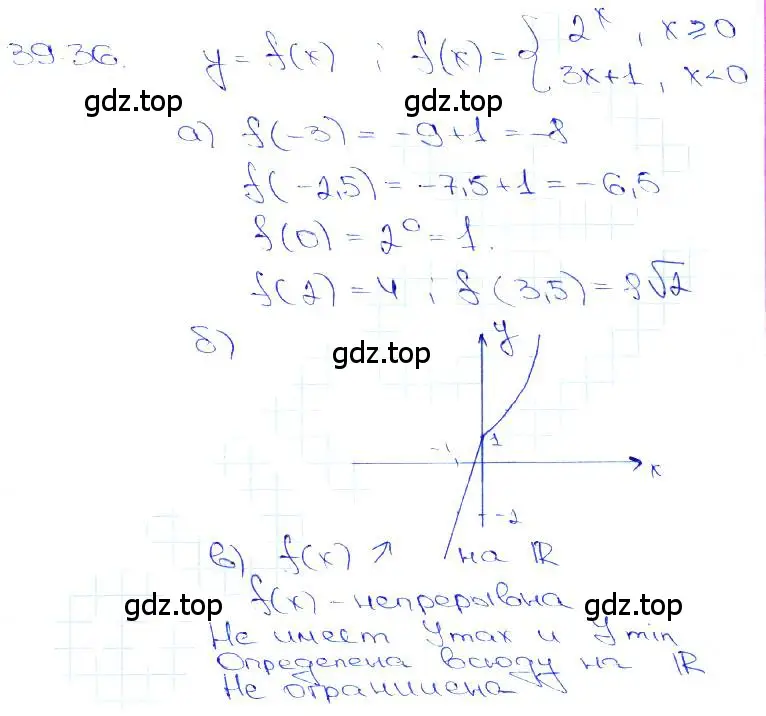 39.36. y = f(x) ; f(x) = { 2^x, x ≥ 0
3x+1, x < 0
gdz.top gdz.top
а) f(-3) = -9+1 = -8
f(-2,5) = -7,5+1 = -6,5
f(0) = 2^0 = 1.
f(2) = 4 ; f(3,5) = 8√2
б) gdz.top y
1
-1
x
-2
в) f(x) ↗ на ℝ
f(x) - непрерывна
gdz.top gdz.top
Не имеет y max и y min
Определена всюду на ℝ
Не ограничена